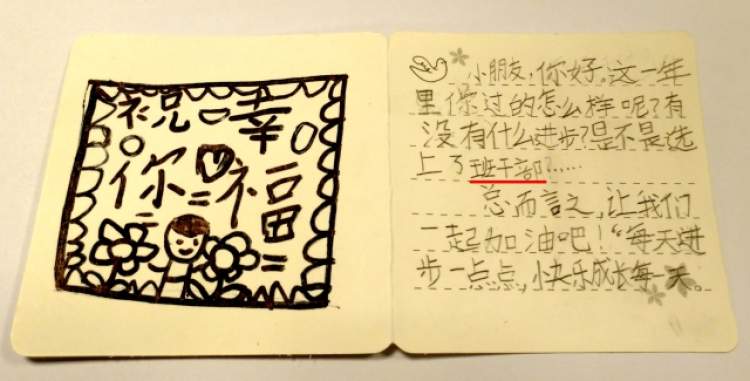 祝你
幸福
小朋友,你好。这一年
里你过的怎么样呢?有
没有什么进步?是不是选
上了班干部?……
总而言之,让我们
一起加油吧!“每天进
步一点点,小快乐成长每一天。